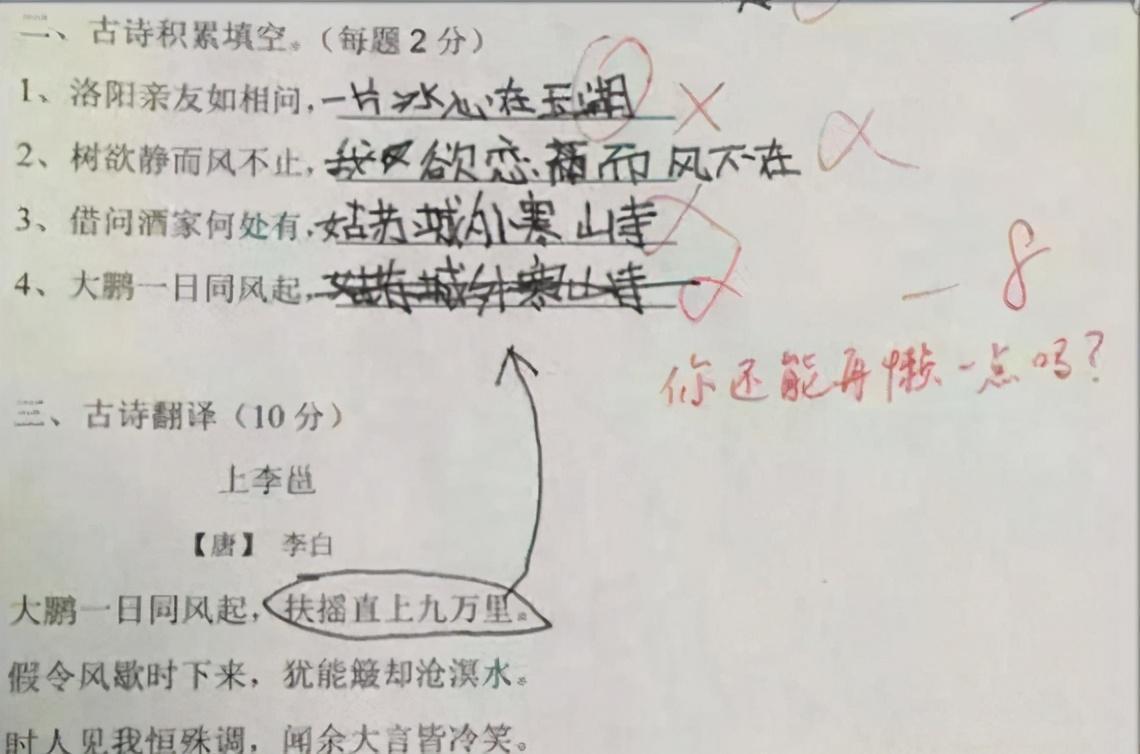 二、古诗积累填空。（每题2分）
1、洛阳亲友如相问，一片冰心在玉湖
2、树欲静而风不止，我又欲恋而风不在
3、借问酒家何处有，姑苏城外寒山寺
4、大鹏一日同风起，姑苏城外寒山寺
-8
你还能再懒一点吗？
三、古诗翻译（10分）
上李邕
【唐】 李白
大鹏一日同风起，扶摇直上九万里。
假令风歇时下来，犹能簸却沧溟水。
时人见我恒殊调，闻余大言皆冷笑。